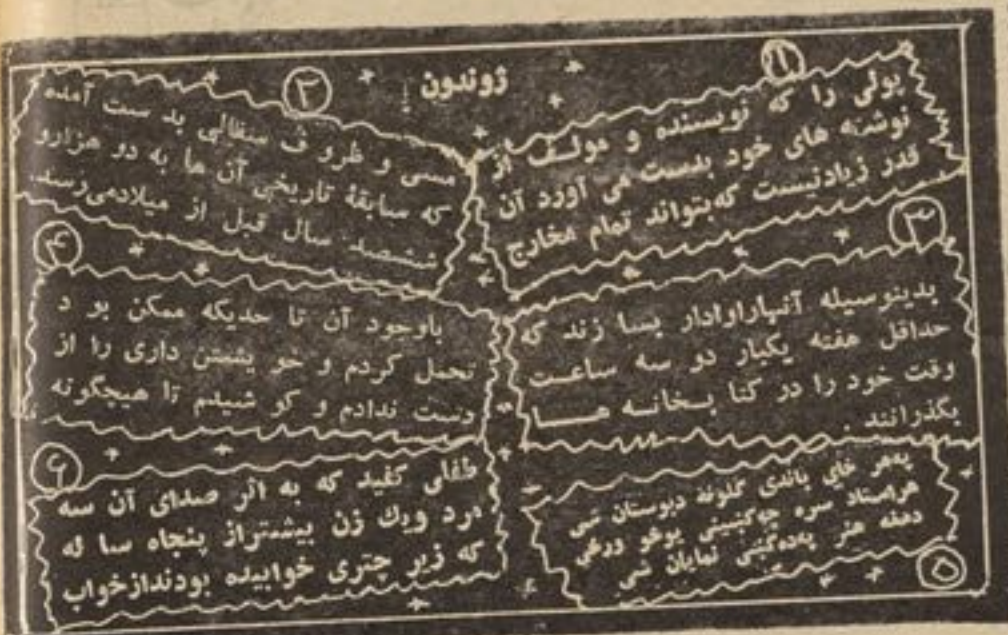 ژوندون
۱
پولی را که نویسنده و مولف از
نوشته های خود بدست می آورد آن
قدر زیادنیست که بتواند تمام مخارج
۲
مسی و ظرو ف سفالی بد ست آمده
که سابقهٔ تاریخی آن ها به دو هزارو
ششصد سال قبل از میلادمی رسد.
۳
بدینوسیله آنهاراوادار بسا زند که
حداقل هفته یکبار دو سه ساعت
وقت خود را در کتا بخانه ها
بگذرانند .
۴
باوجود آن تا حدیکه ممکن بو د
تحمل کردم و خو یشتن داری را از
دست ندادم و کو شیدم تا هیچگونه
۵
پەهر ځای باندی گلونه دبوستان شی
هراستاد سره چه کښینی یوڅو ورځی
دهغه هنر پەده کښی نمایان شی
۶
طفلی کفید که به اثر صدای آن سه
مرد ویك زن بیشتراز پنجاه سا له
که زیر چتری خوابیده بودندازخواب